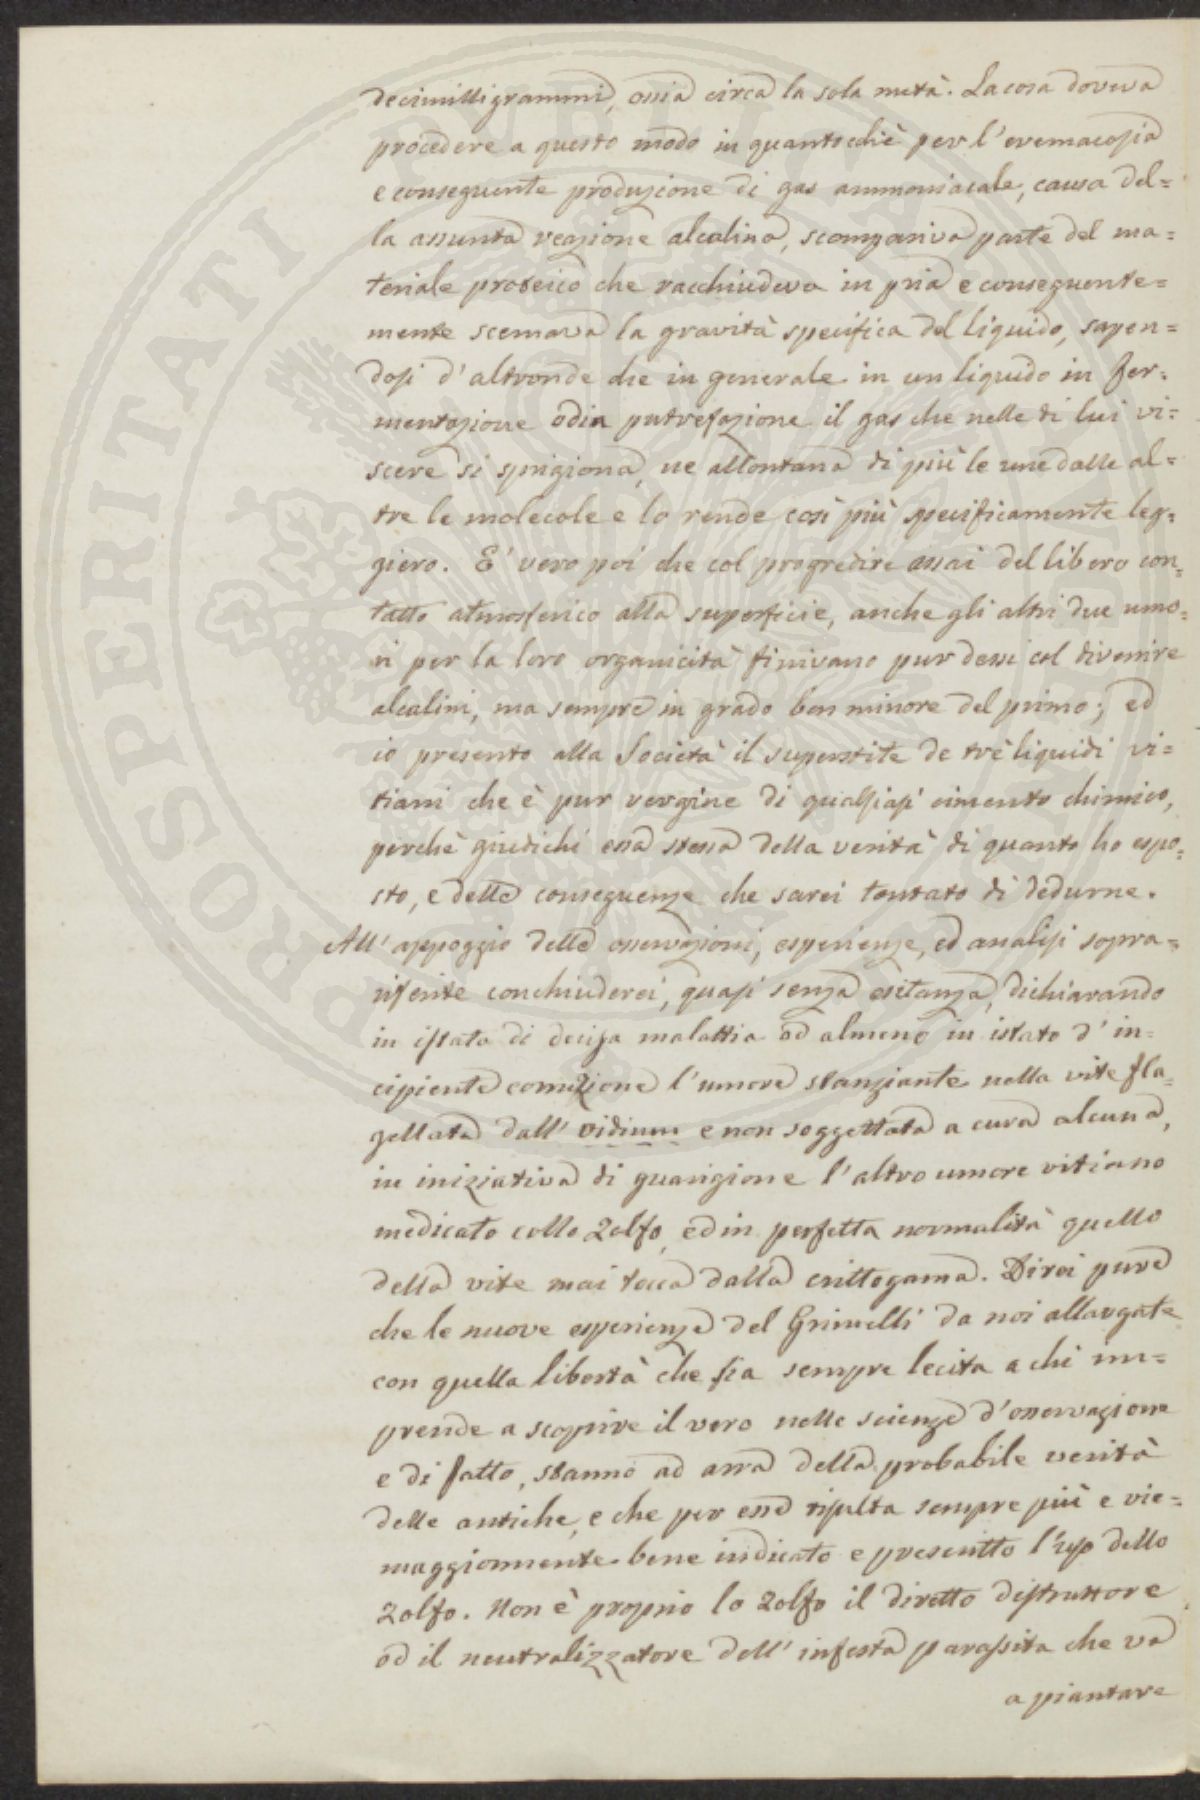 decimilligrammi, ossia circa la sola metà. La cosa doveva
procedere a questo modo in quantochè per l'eremacosia
e conseguente produzione di gas ammoniacale, causa del=
la assunta reazione alcalina, scompariva parte del ma=
teriale proteico che racchiudeva in pria e conseguente=
mente scemava la gravità specifica del liquido, sapen=
dosi d'altronde che in generale in un liquido in fer=
mentazione odia putrefazione il gas che nelle di lui vi=
scere si sprigiona, ne allontana di più le une dalle al=
tre le molecole e lo rende così più specificamente leg=
giero. E' vero poi che col progredire assai del libero con=
tatto atmosferico alla superficie, anche gli altri due umo=
ri per la loro organicità finivano pur dessi col divenire
alcalini, ma sempre in grado ben minore del primo; ed
io presento alla Società il superstite de trè liquidi vi=
tiani che è pur vergine di qualsiasi cimento chimico,
perchè giudichi essa stessa della verità di quanto ho espo=
sto, e delle conseguenze che sarei tentato di dedurne.
All'appoggio delle osservazioni, esperienze, ed analisi sopra=
riferite conchiuderei, quasi senza esitanza, dichiarando
in istato di decisa malattia od almeno in istato d'in=
cipiente corruzione l'umore stanziante nella vite fla=
gellata dall'oidium e non soggettata a cura alcuna,
in iniziativa di guarigione l'altro umore vitiano
medicato collo zolfo, ed in perfetta normalità quello
della vite mai tocca dalla crittogama. Direi pure
che le nuove esperienze del Grimelli da noi allargate
con quella libertà che sia sempre lecita a chi im=
prende a scoprire il vero nelle scienze d'osservazione
e di fatto, stanno ad arra della probabile verità
delle antiche, e che per esse risulta sempre più e vie=
maggiormente bene indicato e prescritto l'uso dello
zolfo. Non è proprio lo zolfo il diretto distruttore
od il neutralizzatore dell'infesta parassita che va
a piantare
PROSPERITATI PUBLICAE